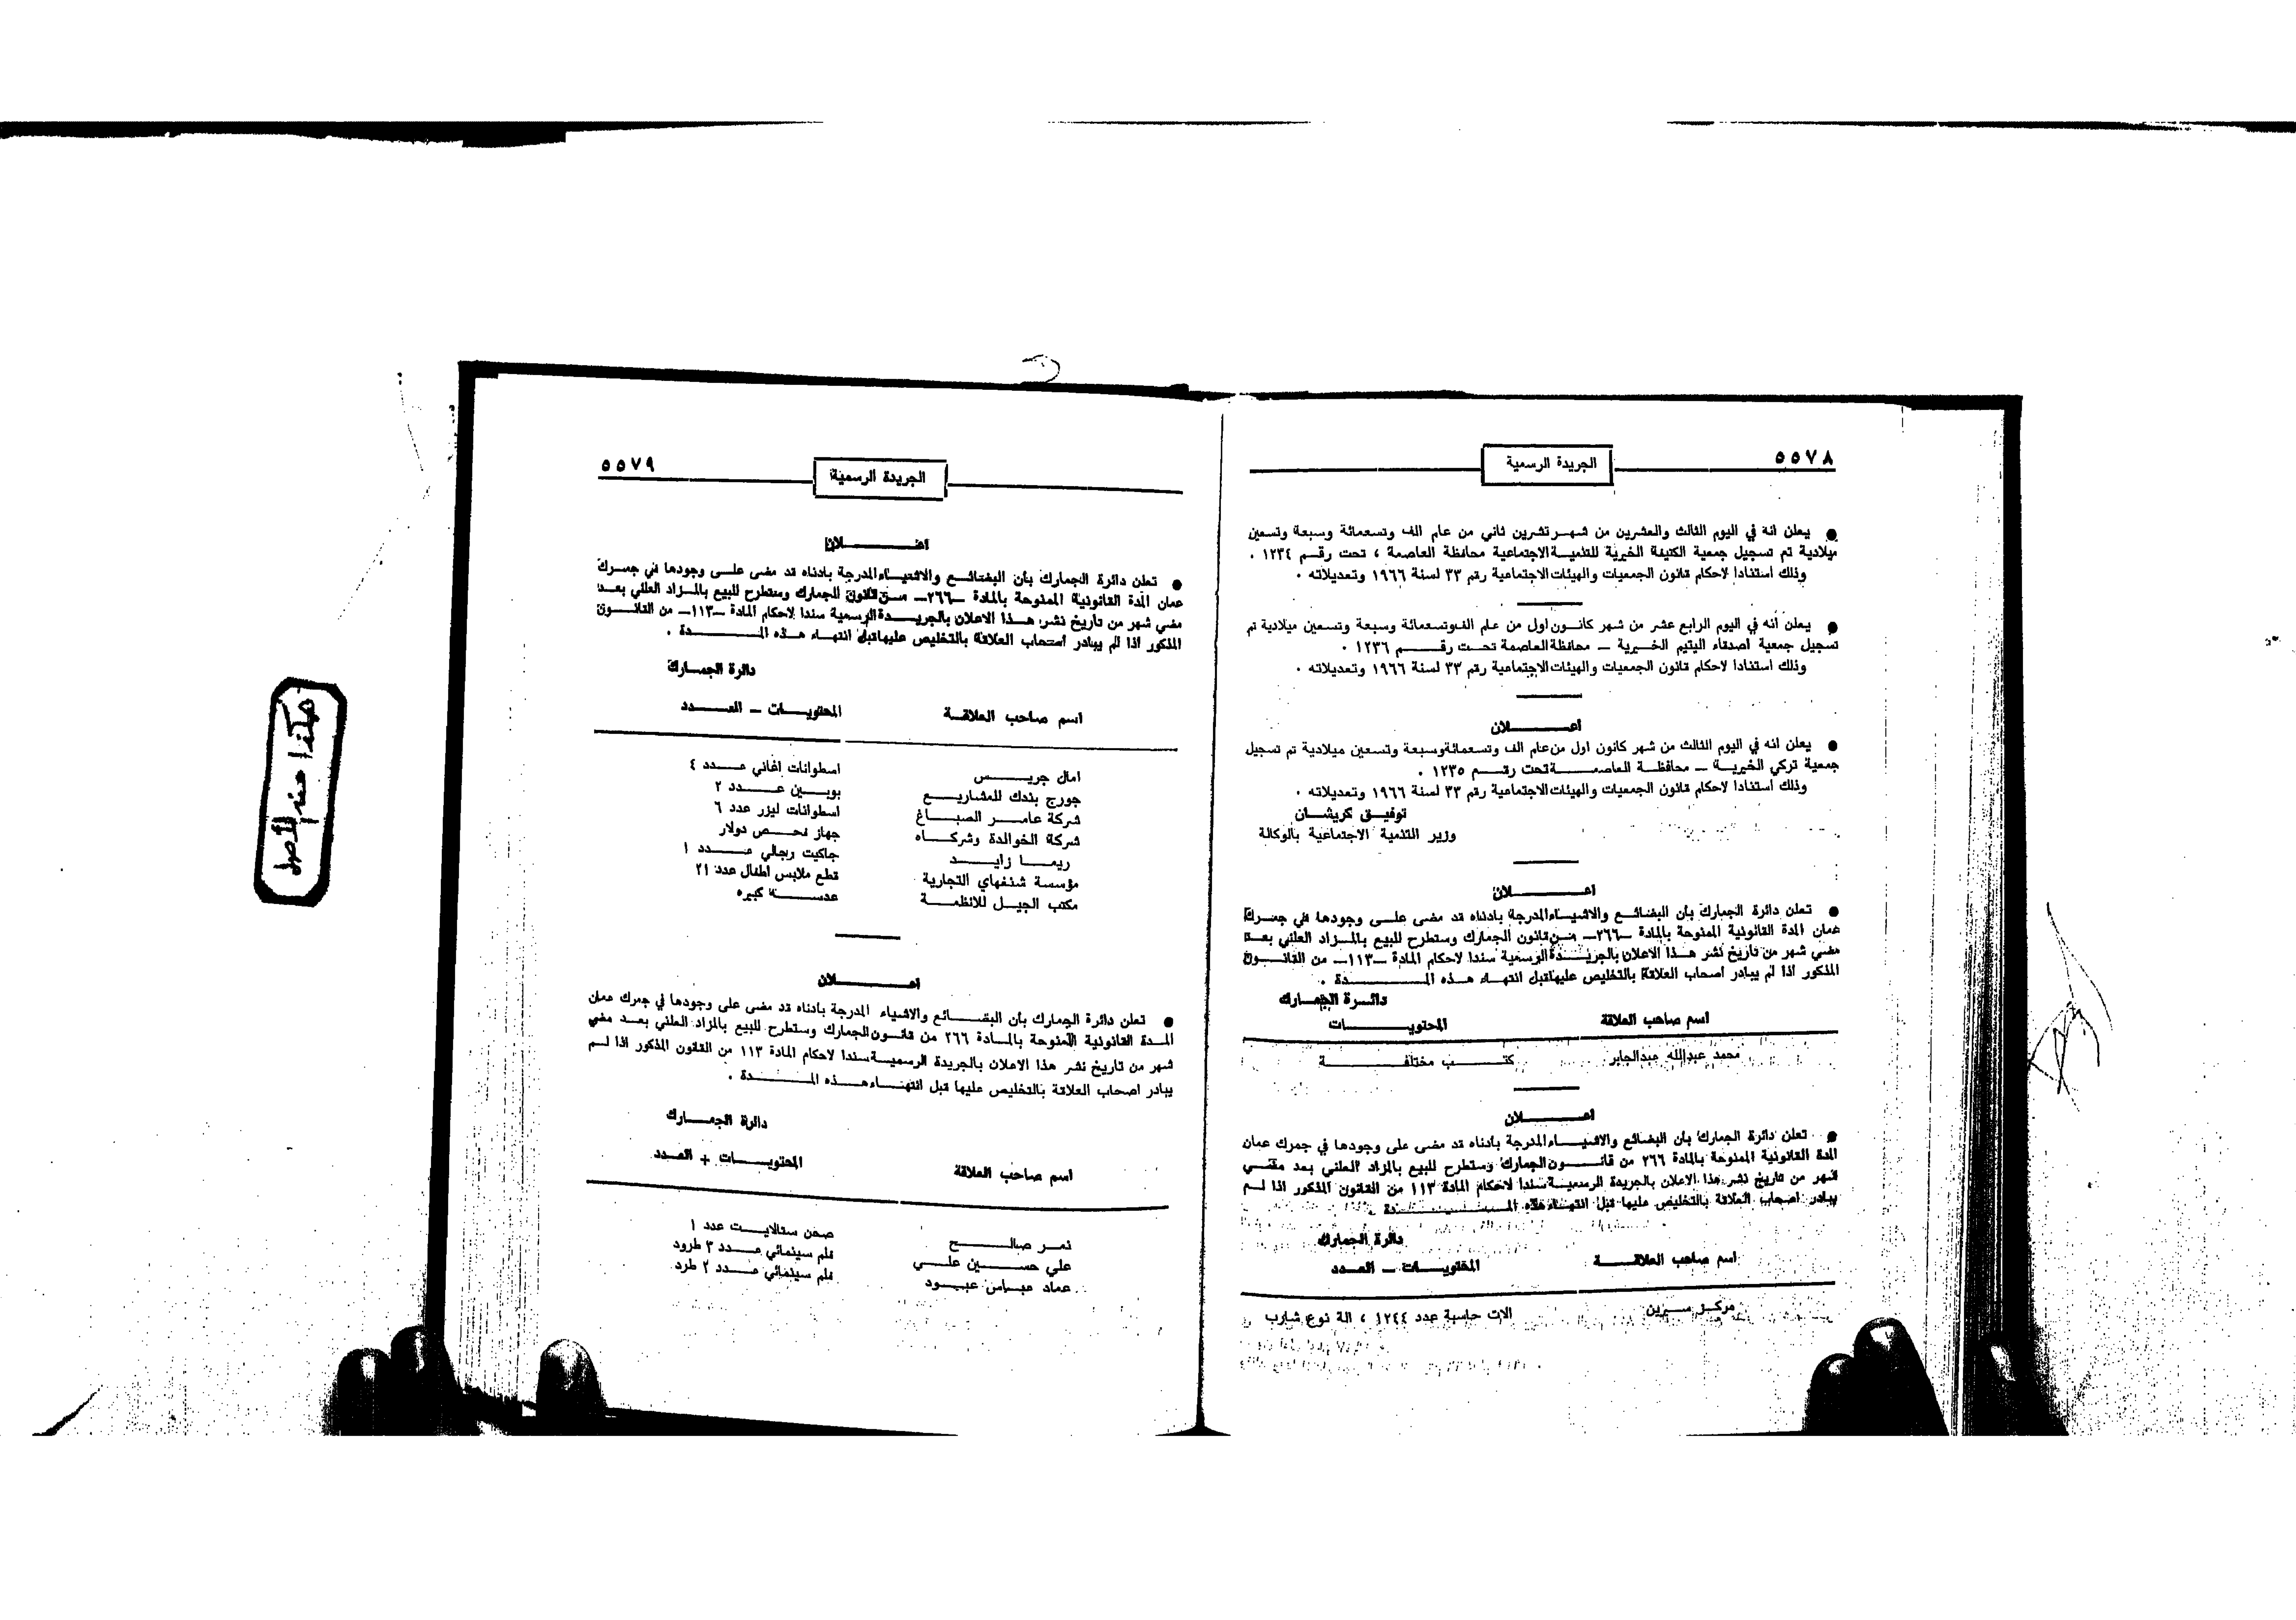 ٥٥٧٨
الجريدة الرسمية
● يعلن انه في اليوم الثالث والعشرين من شهر تشرين ثاني من عام الف وتسعمائة وسبعة وتسعين
ميلادية تم تسجيل جمعية الكتيفة الخيرية للتنمية الاجتماعية محافظة العاصمة ، تحت رقم ١٢٣٤ .
وذلك استنادا لاحكام قانون الجمعيات والهيئات الاجتماعية رقم ٣٣ لسنة ١٩٦٦ وتعديلاته .
● يعلن أنه في اليوم الرابع عشر من شهر كانون اول من عام الف وتسعمائة وسبعة وتسعين ميلادية تم
تسجيل جمعية اصدقاء اليتيم الخيرية — محافظة العاصمة تحت رقم ١٢٣٦ .
وذلك استنادا لاحكام قانون الجمعيات والهيئات الاجتماعية رقم ٣٣ لسنة ١٩٦٦ وتعديلاته .
اعلان
● يعلن انه في اليوم الثالث من شهر كانون اول من عام الف وتسعمائة وسبعة وتسعين ميلادية تم تسجيل
جمعية تركي الخيرية — محافظة العاصمة تحت رقم ١٢٣٥ .
وذلك استنادا لاحكام قانون الجمعيات والهيئات الاجتماعية رقم ٣٣ لسنة ١٩٦٦ وتعديلاته .
توفيق كريشان
وزير التنمية الاجتماعية بالوكالة
اعلان
● تعلن دائرة الجمارك بأن البضائع والاشياء المدرجة بادناه قد مضى على وجودها في جمرك
عمان المدة القانونية الممنوحة بالمادة —٢٦٦— من قانون الجمارك وستطرح للبيع بالمزاد العلني بعد
مضي شهر من تاريخ نشر هذا الاعلان بالجريدة الرسمية سندا لاحكام المادة —١١٣— من القانون
المذكور اذا لم يبادر اصحاب العلاقة بالتخليص عليها قبل انتهاء هذه المدة .
دائرة الجمارك
اسم صاحب العلاقة المحتويات
محمد عبدالله عبدالجابر كتب مختلفة
اعلان
● تعلن دائرة الجمارك بأن البضائع والاشياء المدرجة بادناه قد مضى على وجودها في جمرك عمان
المدة القانونية الممنوحة بالمادة ٢٦٦ من قانون الجمارك وستطرح للبيع بالمزاد العلني بعد مضي
شهر من تاريخ نشر هذا الاعلان بالجريدة الرسمية سندا لاحكام المادة ١١٣ من القانون المذكور اذا لم
يبادر اصحاب العلاقة بالتخليص عليها قبل انتهاء هذه المدة .
دائرة الجمارك
اسم صاحب العلاقة المحتويات — العدد
مركز سيرين الات حاسبة عدد ١٢٤٤ ، الة نوع شارب
٥٥٧٩
الجريدة الرسمية
اعلان
● تعلن دائرة الجمارك بأن البضائع والاشياء المدرجة بادناه قد مضى على وجودها في جمرك
عمان المدة القانونية الممنوحة بالمادة —٢٦٦— من قانون الجمارك وستطرح للبيع بالمزاد العلني بعد
مضي شهر من تاريخ نشر هذا الاعلان بالجريدة الرسمية سندا لاحكام المادة —١١٣— من القانون
المذكور اذا لم يبادر اصحاب العلاقة بالتخليص عليها قبل انتهاء هذه المدة .
دائرة الجمارك
اسم صاحب العلاقة المحتويات — العدد
امال جريس اسطوانات اغاني عدد ٤
جورج بندك للمشاريع بوبين عدد ٢
شركة عامر الصباغ اسطوانات ليزر عدد ٦
شركة الخوالدة وشركاه جهاز فحص دولار
ريما زايد جاكيت رجالي عدد ١
مؤسسة شنغهاي التجارية قطع ملابس اطفال عدد ٢١
مكتب الجيل للانظمة عدسة كبيره
اعلان
● تعلن دائرة الجمارك بأن البضائع والاشياء المدرجة بادناه قد مضى على وجودها في جمرك عمان
المدة القانونية الممنوحة بالمادة ٢٦٦ من قانون الجمارك وستطرح للبيع بالمزاد العلني بعد مضي
شهر من تاريخ نشر هذا الاعلان بالجريدة الرسمية سندا لاحكام المادة ١١٣ من القانون المذكور اذا لم
يبادر اصحاب العلاقة بالتخليص عليها قبل انتهاء هذه المدة .
دائرة الجمارك
اسم صاحب العلاقة المحتويات + العدد
نمر صالح صحن ستالايت عدد ١
علي حسين علي فلم سينمائي عدد ٣ طرود
عماد عباس عبود فلم سينمائي عدد ٢ طرد
هكذا منه الأصل